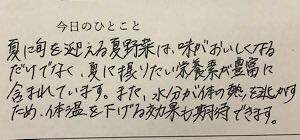 今日のひとこと
夏に旬を迎える夏野菜は、味がおいしくなる
だけでなく、夏に摂りたい栄養素が豊富に
含まれています。また、水分が体の熱を逃がす
ため、体温を下げる効果も期待できます。